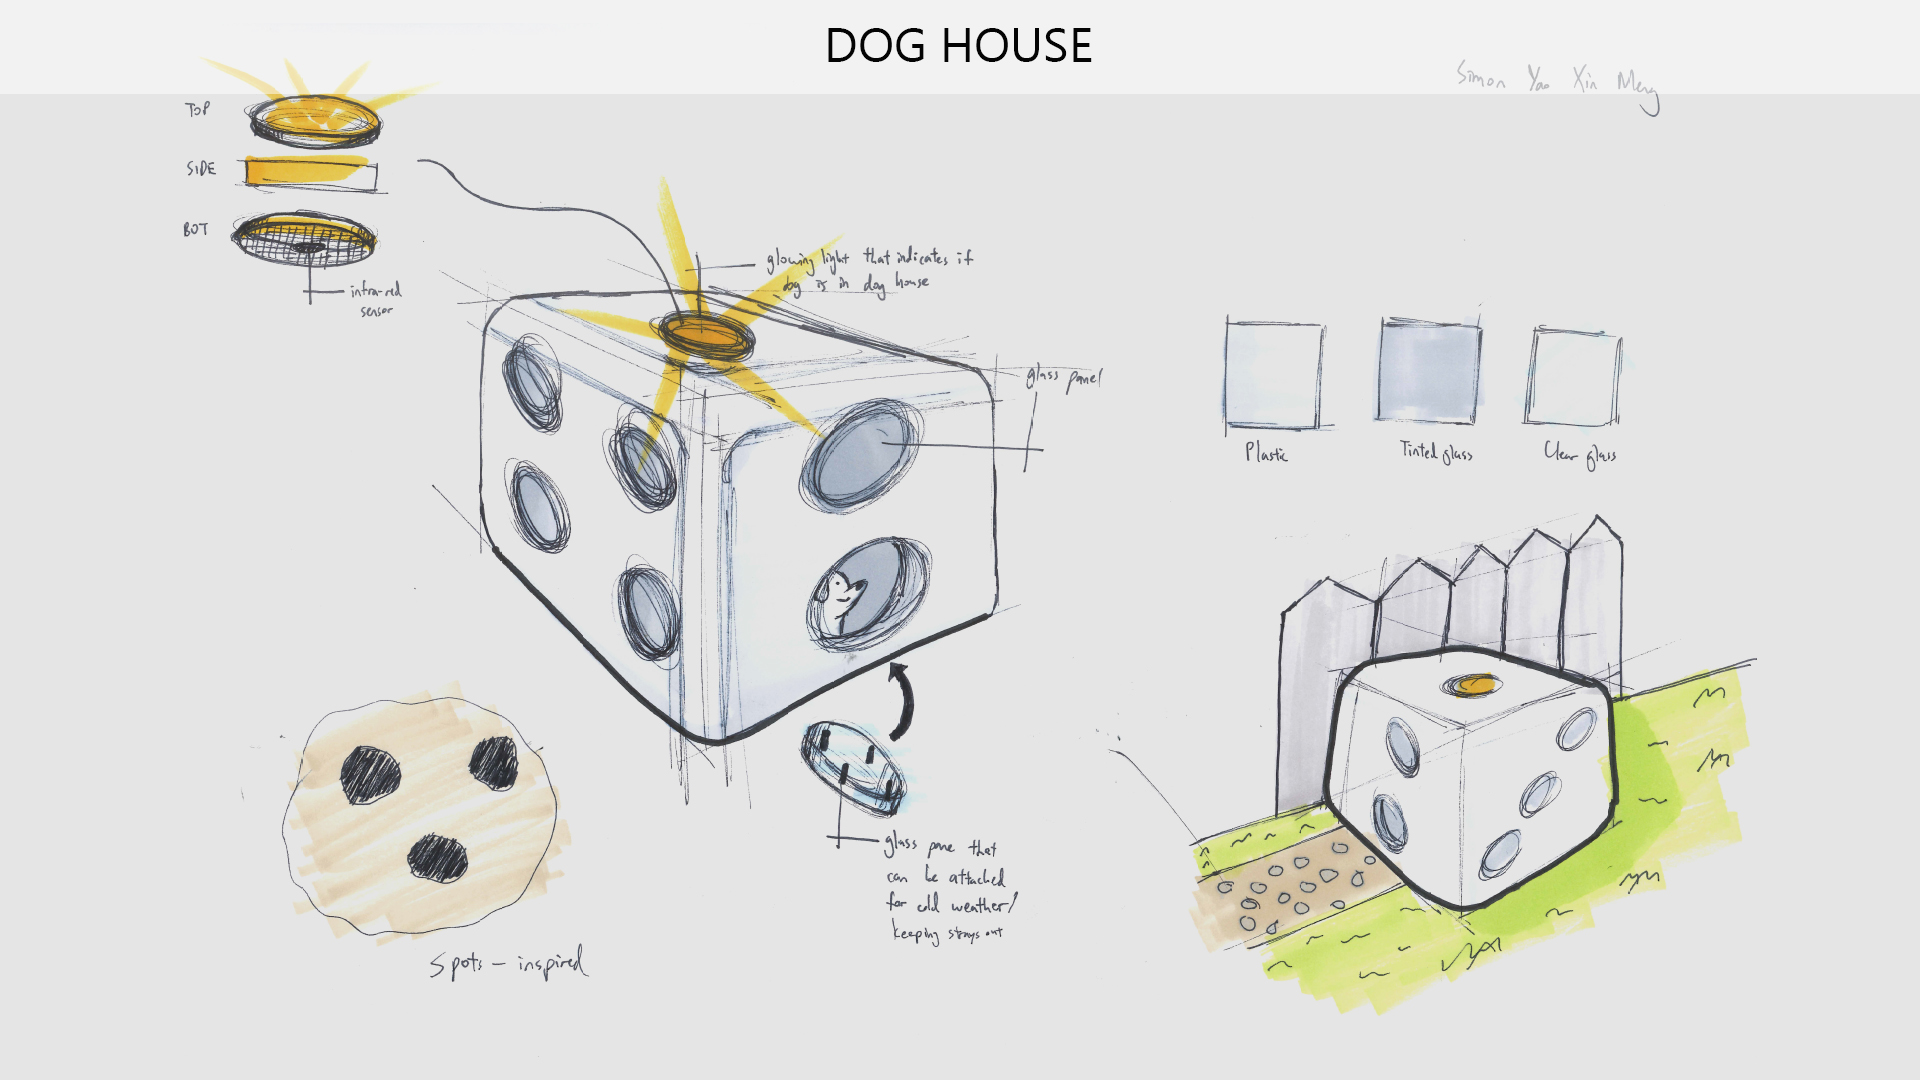 DOG HOUSE
Simon Yao Xin Meng
TOP
SIDE
BOT
infra-red
sensor
glowing light that indicates if
dog is in dog house
glass panel
Plastic
Tinted glass
Clear glass
glass pane that
can be attached
for cold weather/
keeping strays out
Spots - inspired